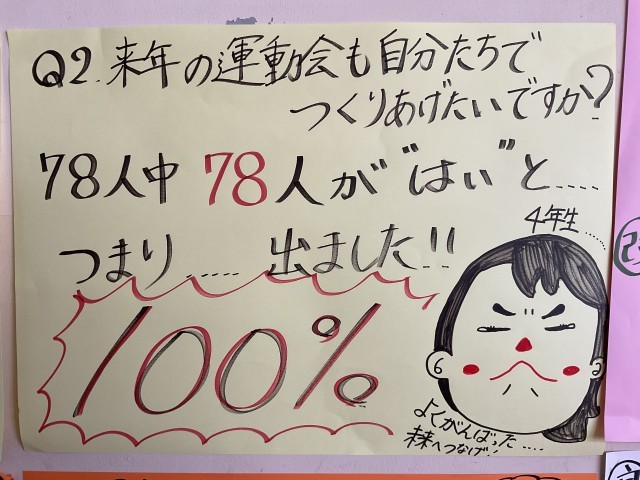 Q2.来年の運動会も自分たちで
つくりあげたいですか?
78人中 78人が"はい"と....
つまり..... 出ました!!
100%
4年生.....
よくがんばった....
未来へつなげ!